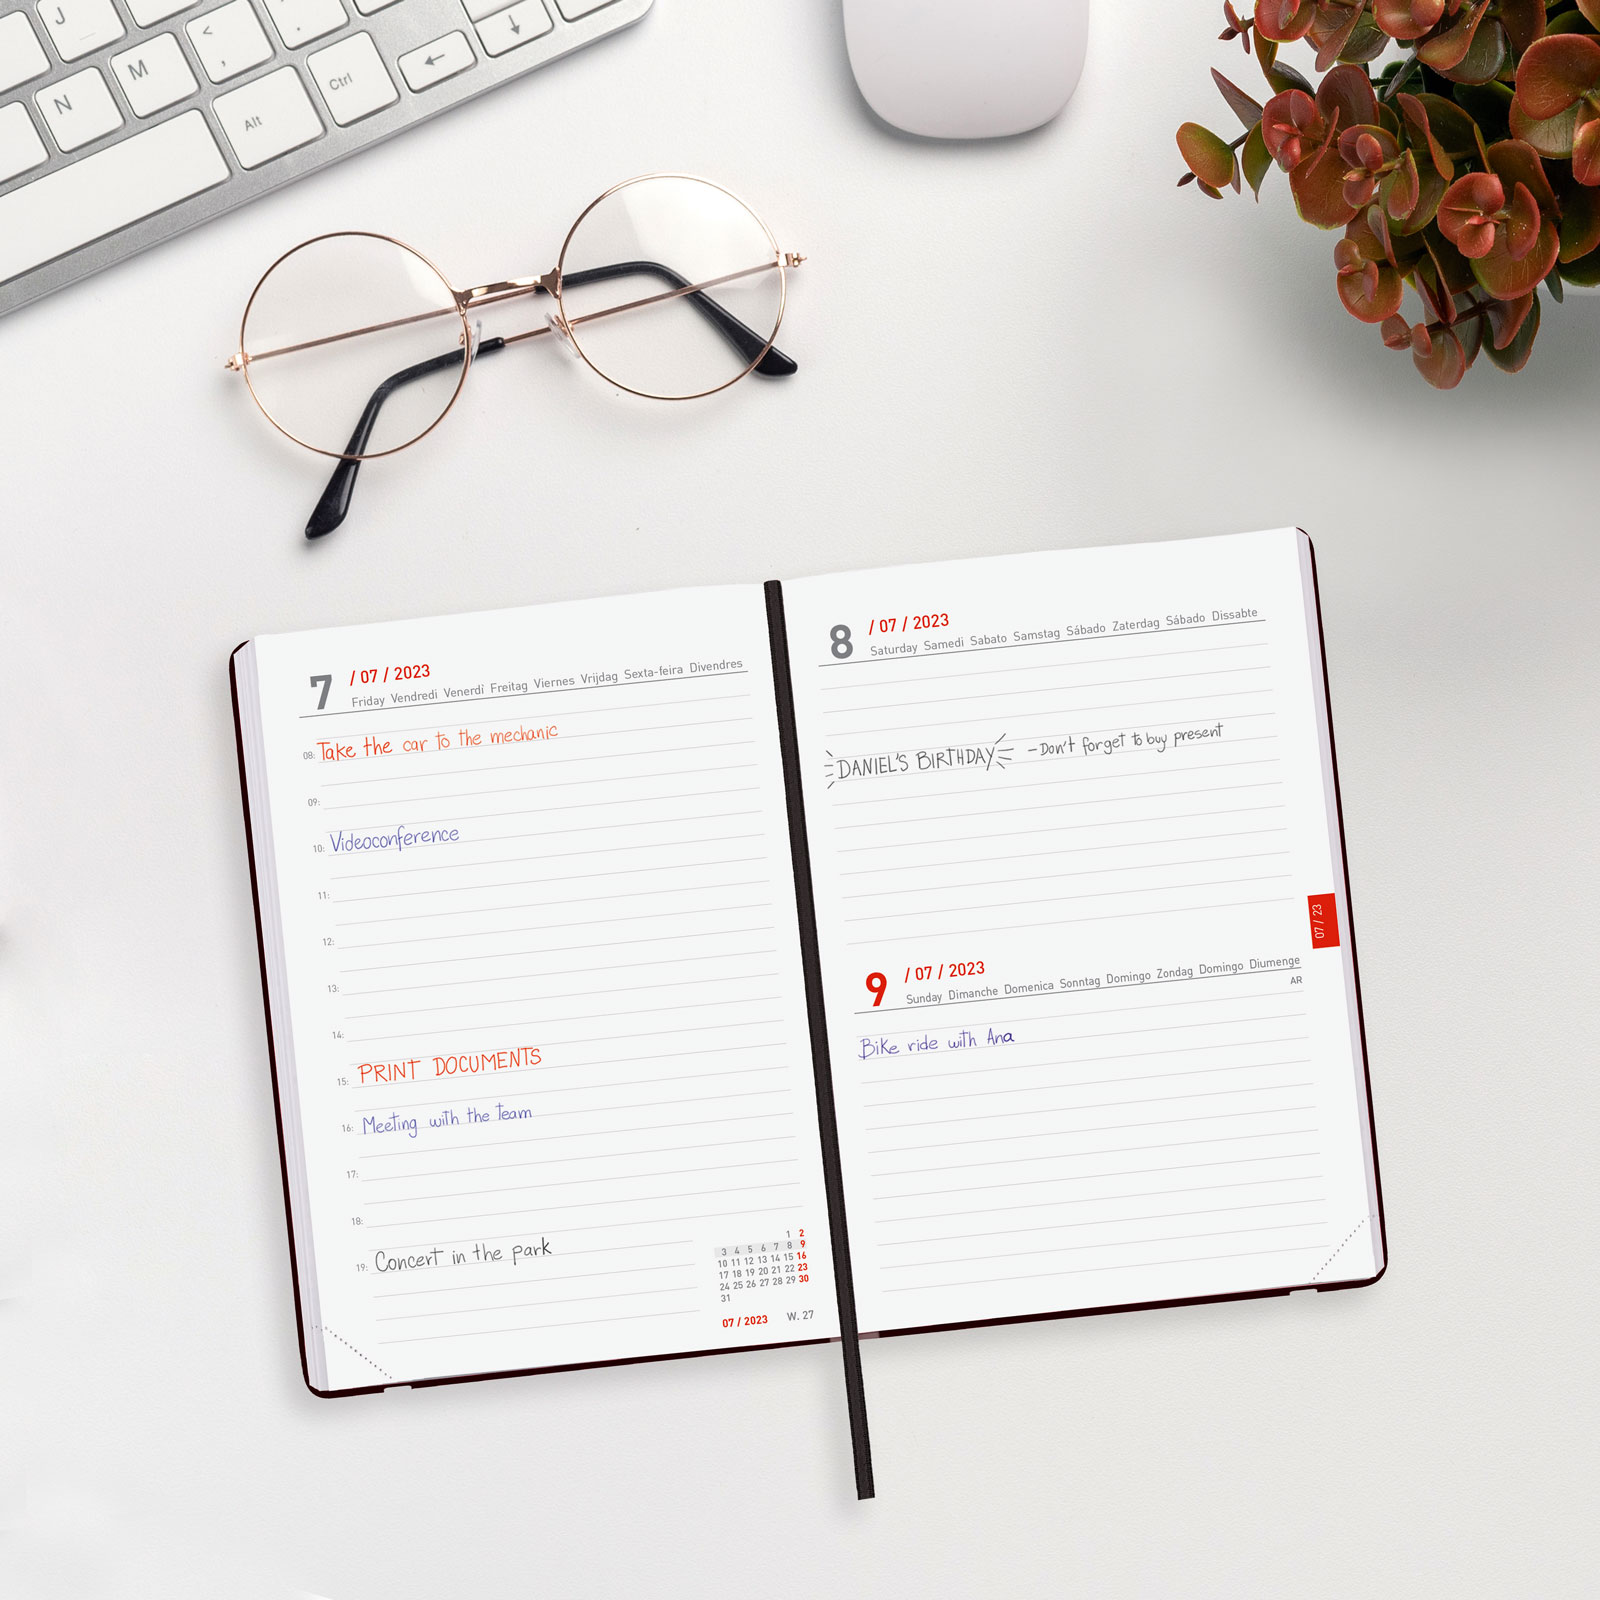 J
<
,
.
M
N
Ctrl
Alt
←
↓
7 / 07 / 2023
Friday Vendredi Venerdì Freitag Viernes Vrijdag Sexta-feira Divendres
08: Take the car to the mechanic
09:
10: Videoconference
11:
12:
13:
14:
15: PRINT DOCUMENTS
16: Meeting with the team
17:
18:
19: Concert in the park
1 2
3 4 5 6 7 8 9
10 11 12 13 14 15 16
17 18 19 20 21 22 23
24 25 26 27 28 29 30
31
07 / 2023 W. 27
8 / 07 / 2023
Saturday Samedi Sabato Samstag Sábado Zaterdag Sábado Dissabte
DANIEL'S BIRTHDAY - Don't forget to buy present
07 / 23
9 / 07 / 2023
Sunday Dimanche Domenica Sonntag Domingo Zondag Domingo Diumenge
AR
Bike ride with Ana